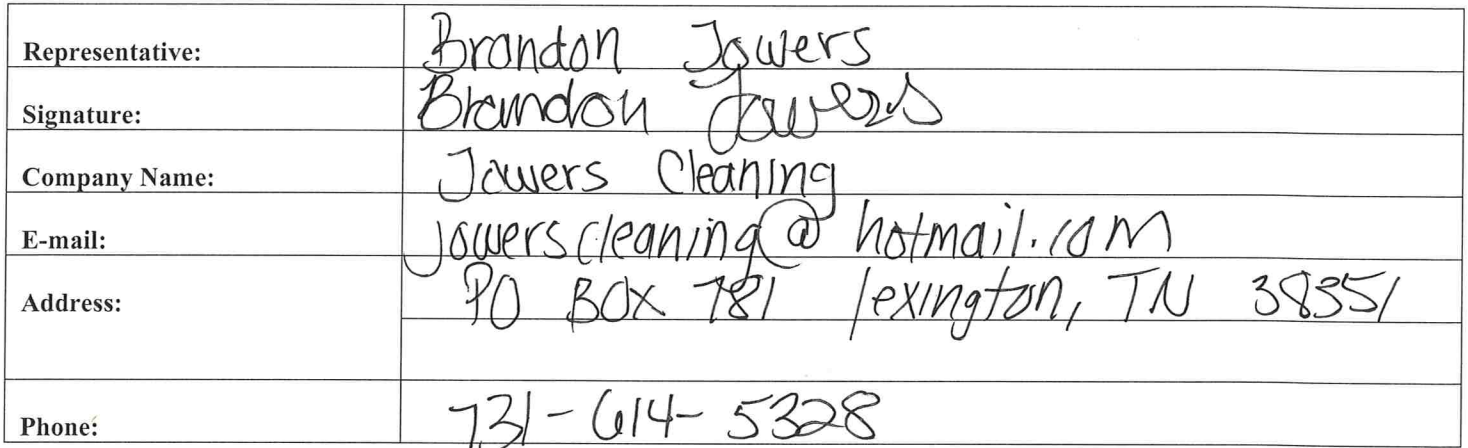 Representative: Brandon Jowers
Signature: Brandon Jowers
Company Name: Jowers Cleaning
E-mail: jowerscleaning@hotmail.com
Address: PO BOX 781 lexington, TN 38351
Phone: 731-614-5328